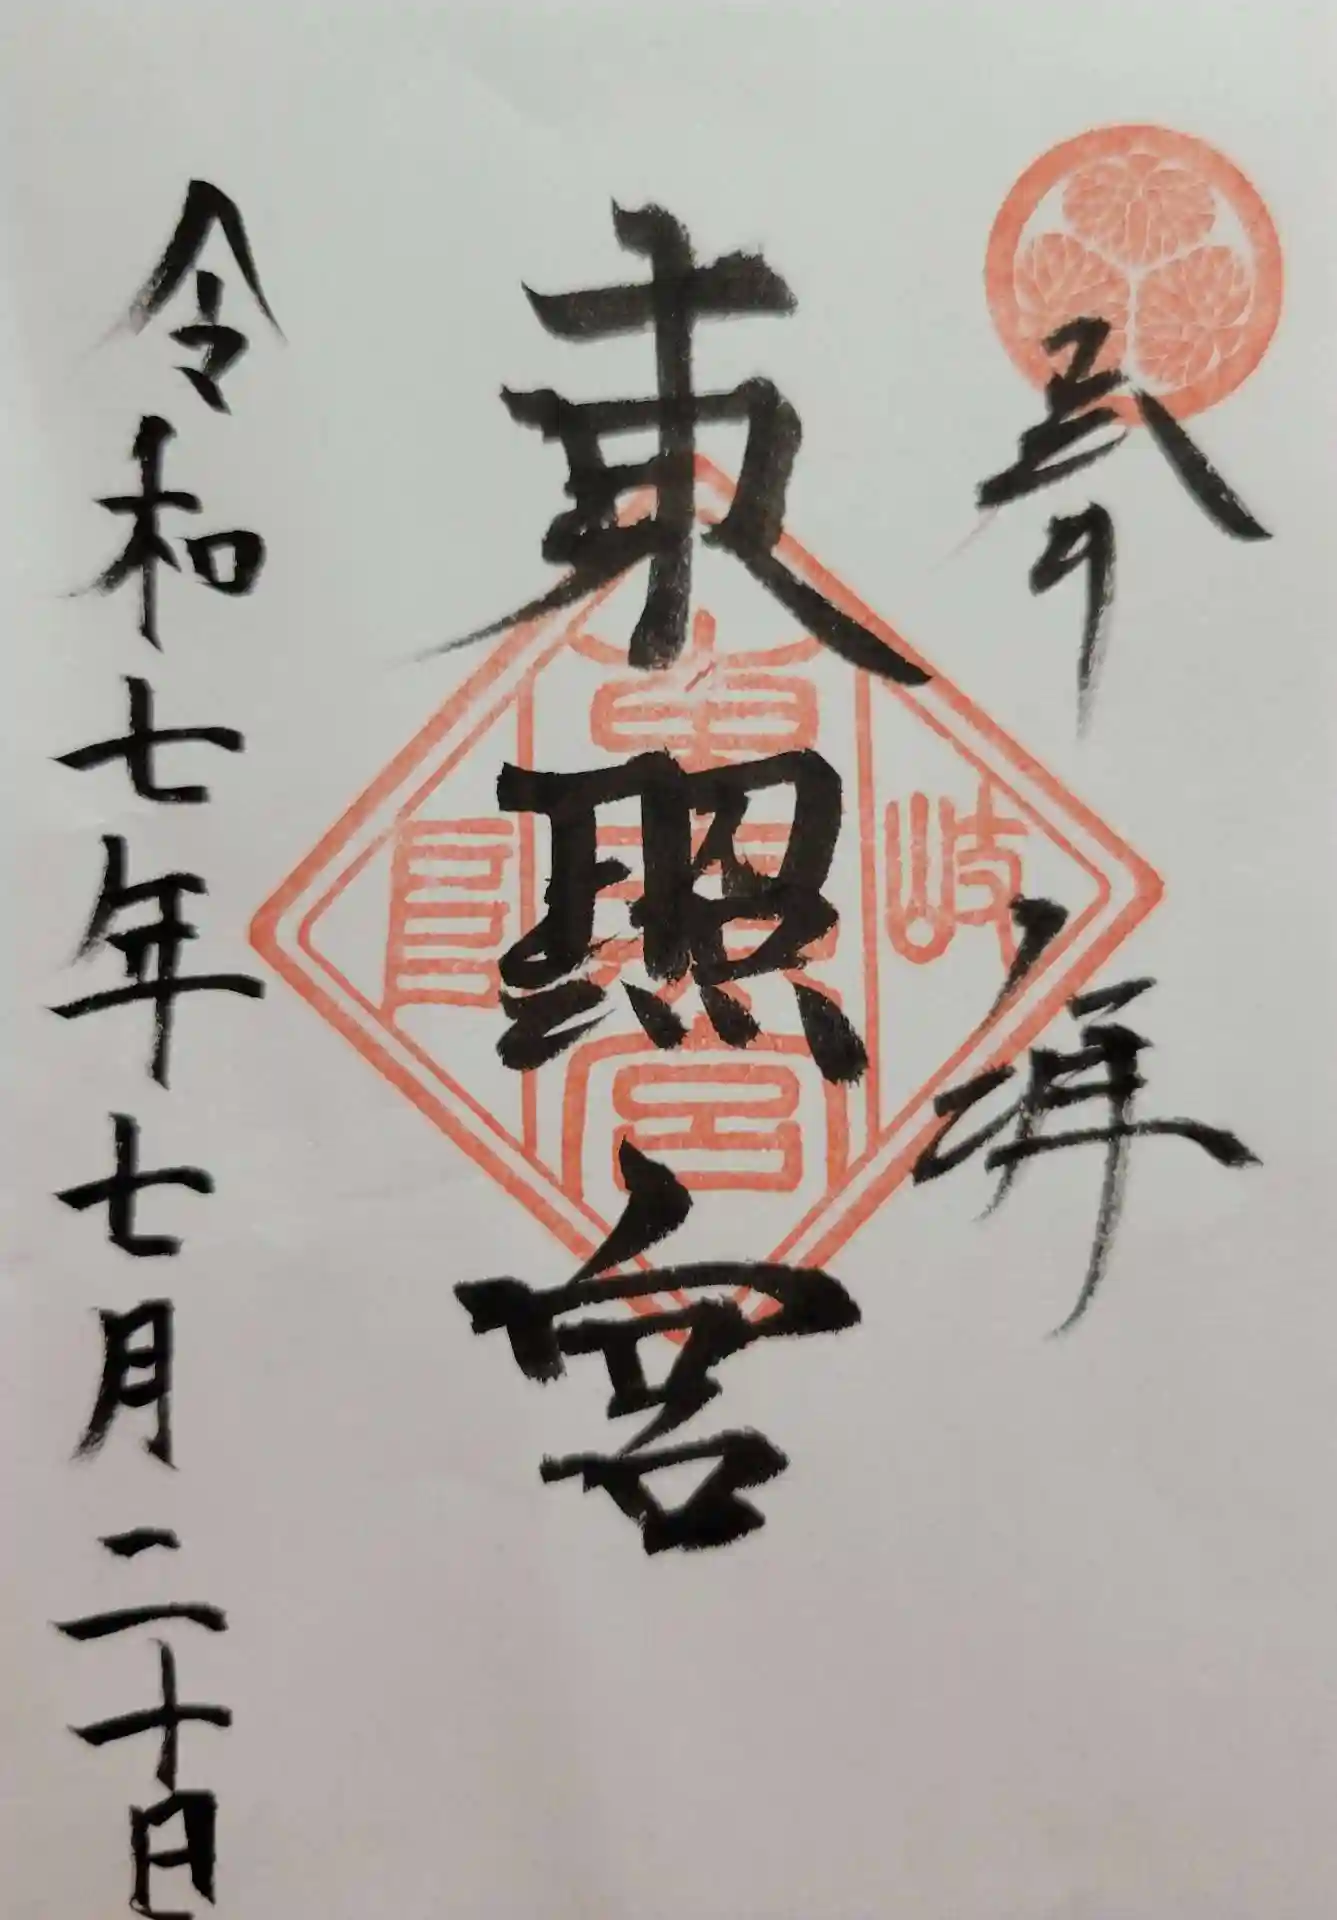 奉拝
東照宮
岐阜
東照宮
令和七年七月二十日